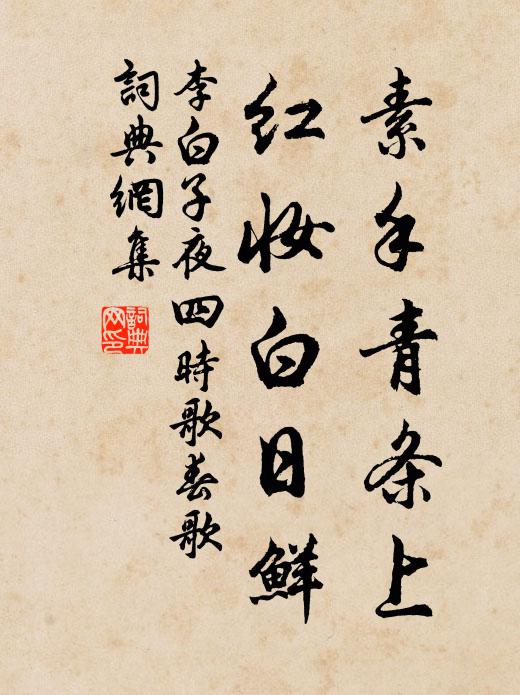 素手青条上
红妆白日鲜
李白子夜四時歌春歌
詞典網集
詞典网印